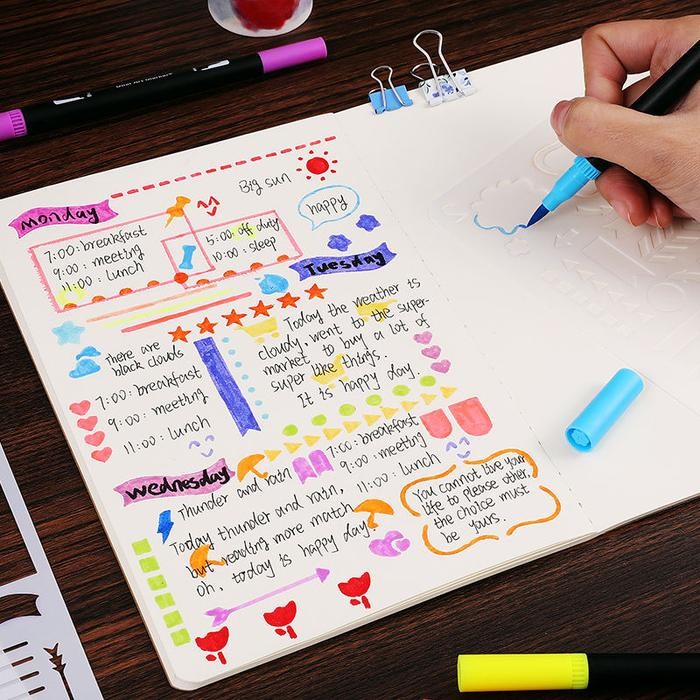 Big sun
monday
7:00: breakfast
9:00: meeting
11:00: Lunch
15:00: off duty
10:00: sleep
happy
Tuesday
There are
black clouds
7:00: breakfast
9:00: meeting
11:00: Lunch
Today the weather is
cloudy, went to the super-
market to buy a lot of
super like things.
It is happy day.
wednesday
Thunder and rain
7:00: breakfast
9:00: meeting
11:00: Lunch
Today thunder and rain,
but reading more match
oh, today is happy day!
You cannot live your
life to please other.
the choice must
be yours.